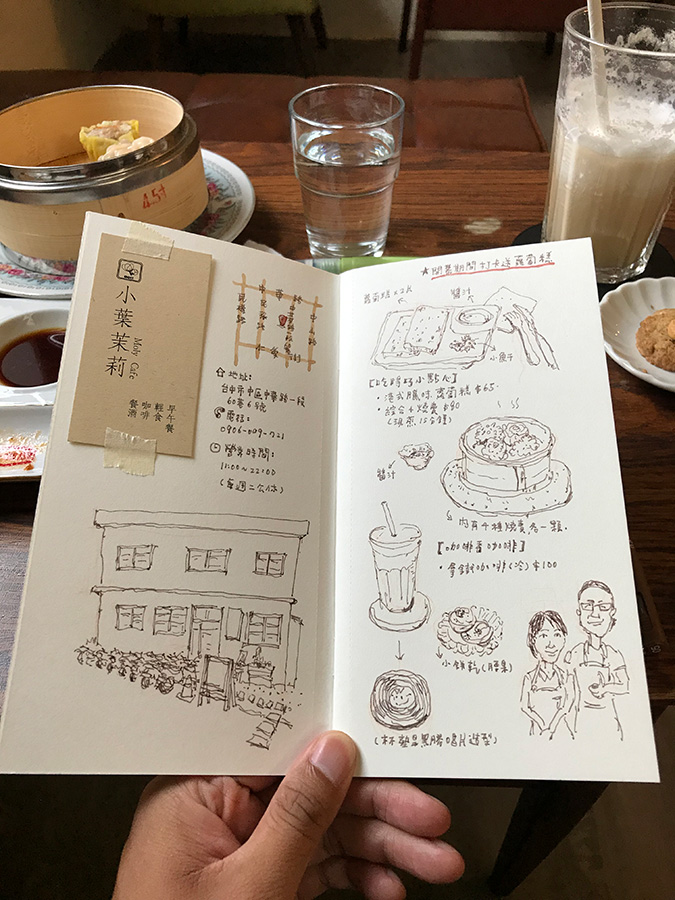 小葉茉莉
Moly Cafe
早午餐
輕食
咖啡
餐酒
地址:
台中市中區中華路一段
60巷6號
電話:
0906-009-021
營業時間:
11:00~22:00
(每週二公休)
★開幕期間打卡送蘿蔔糕
蘿蔔糕x2片
醬汁
小魚干
小點心】
・港式臘味蘿蔔糕 $65
・綜合4燒賣 $90
(現蒸15分鐘)
醬汁
內有4種燒賣各一顆.
・拿鐵咖啡(冷) $100
小餅乾(腰果)
(杯墊是黑膠唱片造型)